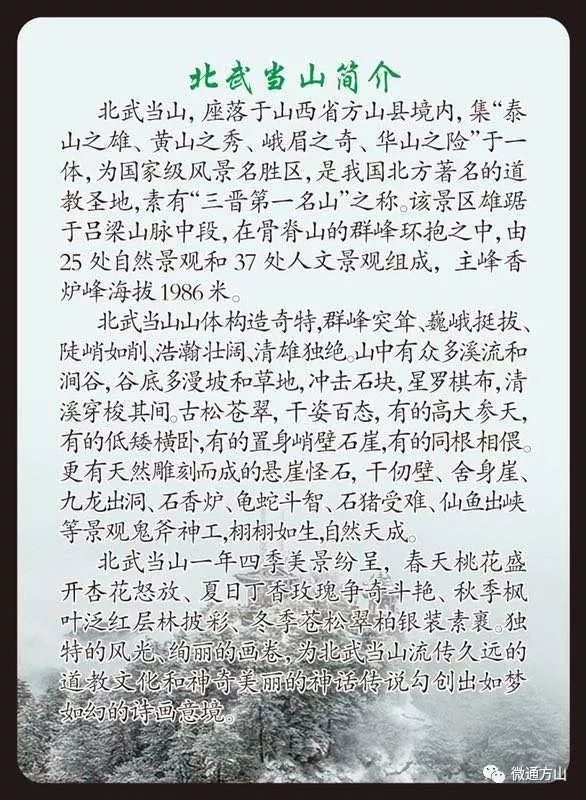 北武当山简介
北武当山，座落于山西省方山县境内，集“泰
山之雄、黄山之秀、峨眉之奇、华山之险”于一
体，为国家级风景名胜区，是我国北方著名的道
教圣地，素有“三晋第一名山”之称。该景区雄踞
于吕梁山脉中段，在骨脊山的群峰环抱之中，由
25 处自然景观和 37 处人文景观组成，主峰香
炉峰海拔 1986 米。
北武当山山体构造奇特，群峰突耸、巍峨挺拔、
陡峭如削、浩瀚壮阔、清雄独绝。山中有众多溪流和
涧谷，谷底多漫坡和草地，冲击石块，星罗棋布，清
溪穿梭其间。古松苍翠，千姿百态，有的高大参天，
有的低矮横卧，有的置身峭壁石崖，有的同根相偎。
更有天然雕刻而成的悬崖怪石，千仞壁、舍身崖、
九龙出洞、石香炉、龟蛇斗智、石猪受难、仙鱼出峡
等景观鬼斧神工，栩栩如生，自然天成。
北武当山一年四季美景纷呈，春天桃花盛
开杏花怒放、夏日丁香玫瑰争奇斗艳、秋季枫
叶泛红层林披彩、冬季苍松翠柏银装素裹。独
特的风光、绚丽的画卷，为北武当山流传久远的
道教文化和神奇美丽的神话传说勾创出如梦
如幻的诗画意境。
微通方山